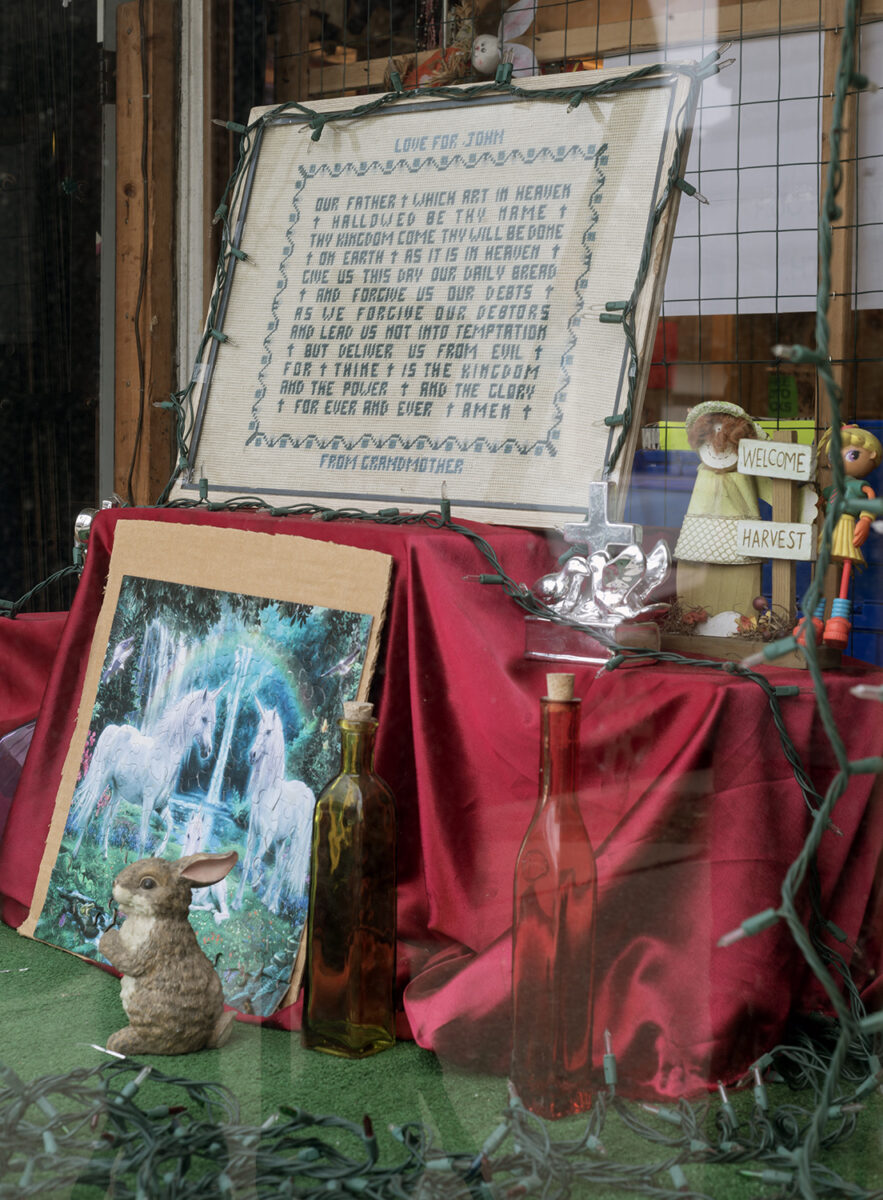 LOVE FOR JOHN
OUR FATHER † WHICH ART IN HEAVEN
† HALLOWED BE THY NAME †
THY KINGDOM COME THY WILL BE DONE
† ON EARTH † AS IT IS IN HEAVEN †
GIVE US THIS DAY OUR DAILY BREAD
† AND FORGIVE US OUR DEBTS †
AS WE FORGIVE OUR DEBTORS
AND LEAD US NOT INTO TEMPTATION
† BUT DELIVER US FROM EVIL †
FOR † THINE † IS THE KINGDOM
AND THE POWER † AND THE GLORY
† FOR EVER AND EVER † AMEN †
FROM GRANDMOTHER
WELCOME
HARVEST